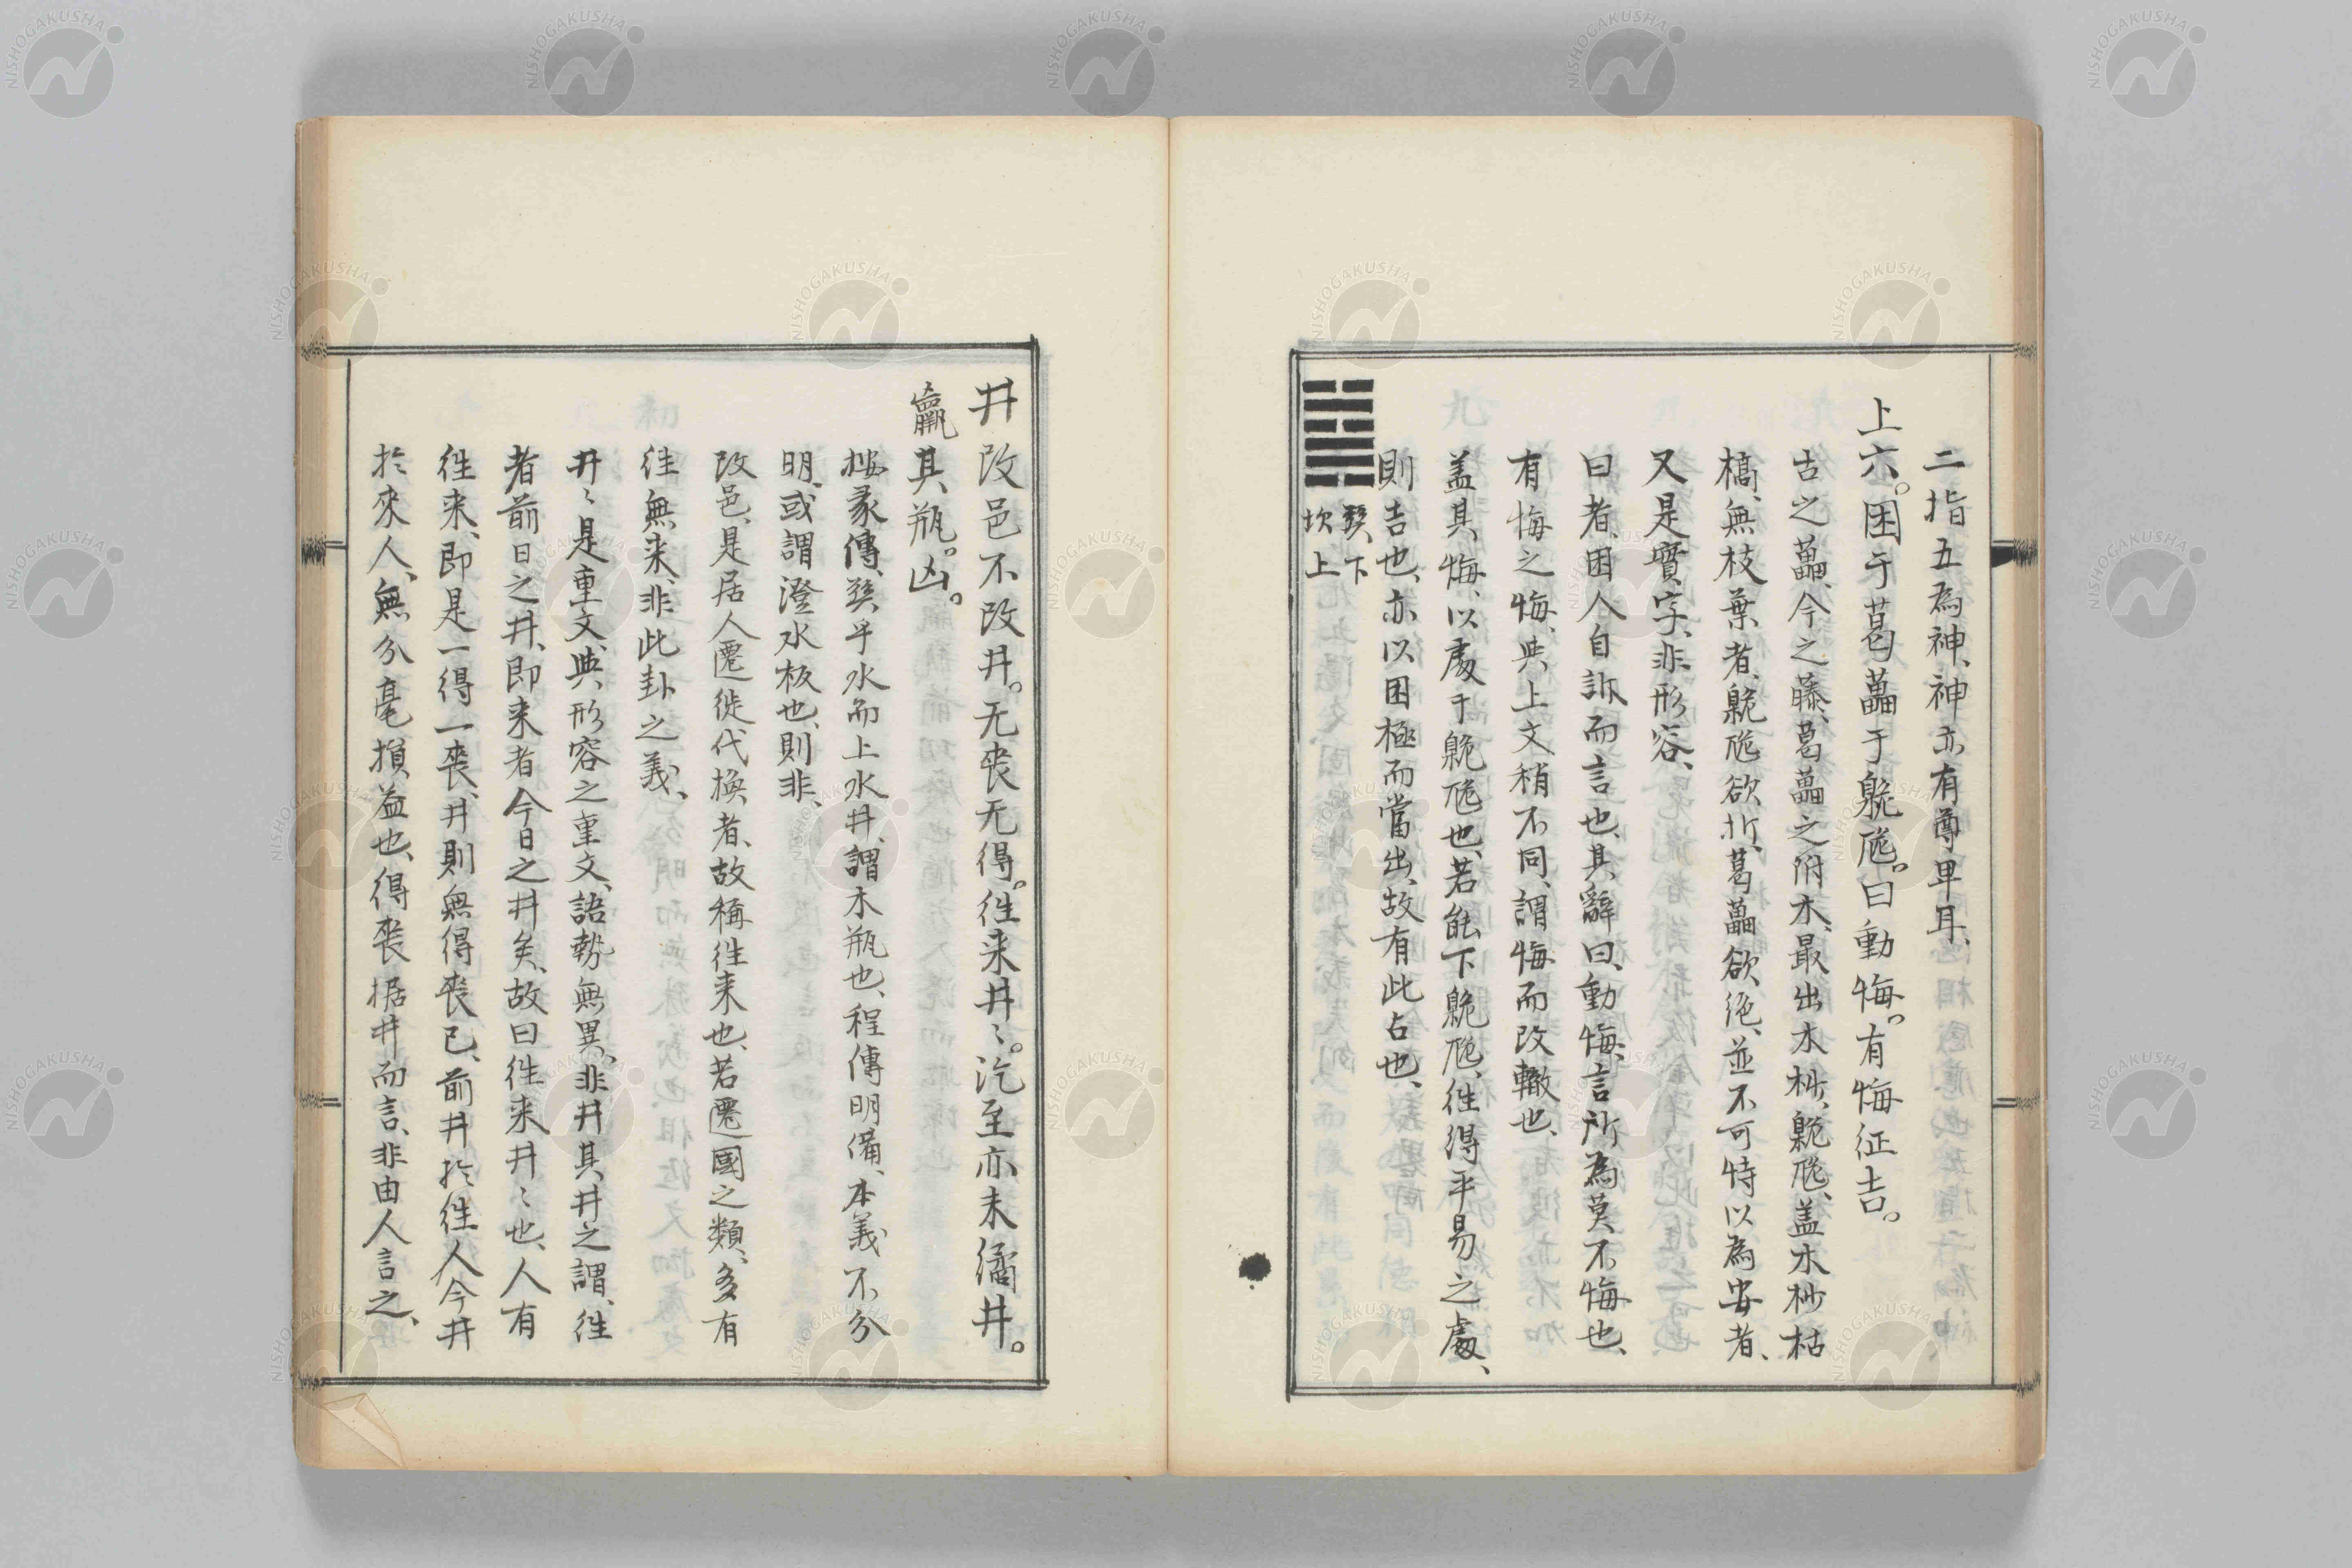 二指五為神、神亦有尊卑耳、
上六。困于葛藟于臲卼。曰動悔。有悔征吉。
古之藟、今之藤、葛藟之附木、最出木杪、臲卼、盖木杪枯
槁、無枝葉者、臲卼欲折、葛藟欲絶、並不可恃以為安者、
又是實字、非形容、
曰者、困人自訴而言也、其辭曰、動悔、言所為莫不悔也、
有悔之悔、與上文稍不同、謂悔而改轍也、
盖其悔、以處于臲卼也、若能下臲卼、徃得平易之處、
則吉也、亦以困極而當出、故有此占也、
巽下
坎上
井改邑不改井。无喪无得。徃来井〻。汔至亦未繘井。
羸其瓶。凶。
按彖傳、巽乎水而上水井、謂木瓶也、程傳明備、本義不分
明、或謂澄水板也、則非、
改邑、是居人遷徙代換者、故稱徃来也、若遷國之類、多有
徃無来、非此卦之義、
井〻是重文、與形容之重文、語勢無異、非井其井之謂、徃
者前日之井、即来者今日之井矣、故曰徃来井〻也、人有
徃来、即是一得一喪、井則無得喪已、前井於徃人今井
於來人、無分毫損益也、得喪据井而言、非由人言之、
NISHOGAKUSHA